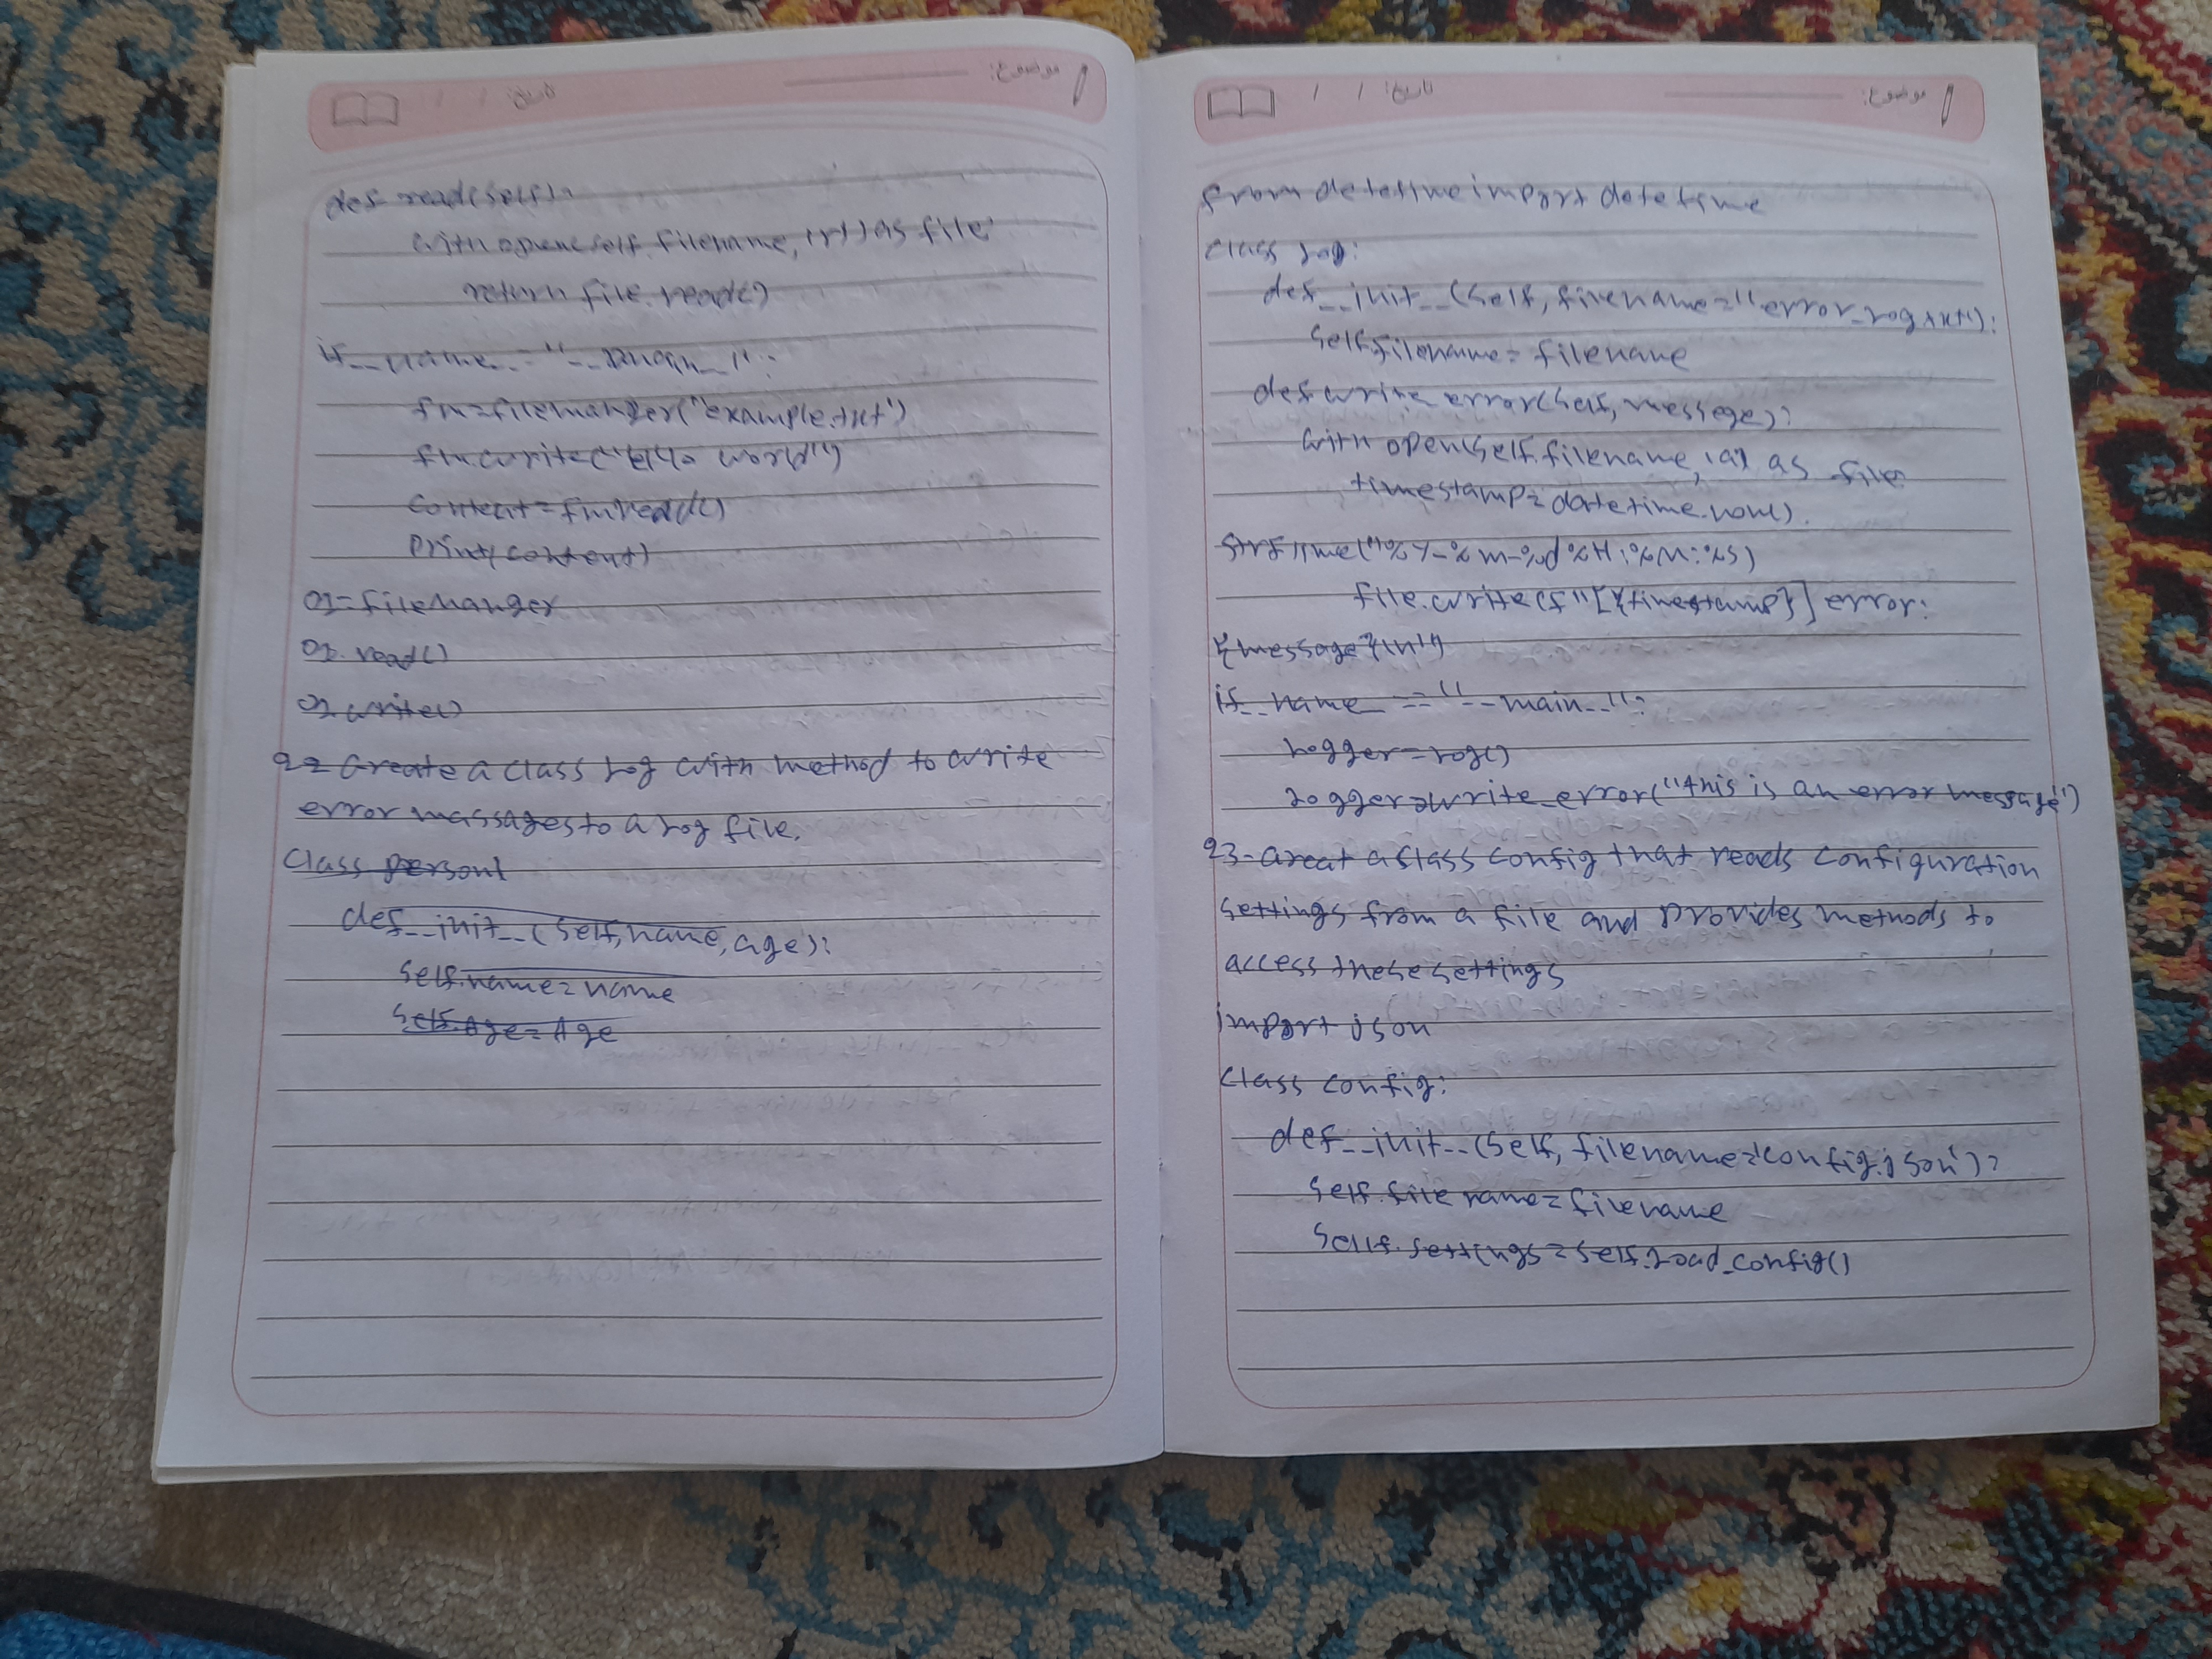 def read(self):
with open(self.filename, 'r') as file:
return file.read()
if __name__ = "__main__":
fm = filemanger('example.txt')
fm.write("Ello world")
content = fm.read()
print(content)
o1 = filemanger
o1.read()
o1.write()
q2- Create a class log with method to write
error messages to a log file.
Class person1
def __init__(self, name, age):
self.name = name
self.Age = Age
from datetime import datetime
class log:
def __init__(self, filename = "error_log.txt"):
self.filename = filename
def write_error(self, message):
with open(self.filename, 'a') as file
timestamp = datetime.now().
strftime("%Y-%m-%d %H:%M:%S)
file.write(f"[{timestamp}] error:
{message}\n")
if __name__ == "__main__":
logger = log()
logger.write_error("this is an error message")
q3- creat a class config that reads configuration
settings from a file and provides methods to
access these settings
import json
class config:
def __init__(self, filename='config.json'):
self.filename = filename
self.settings = self.load_config()